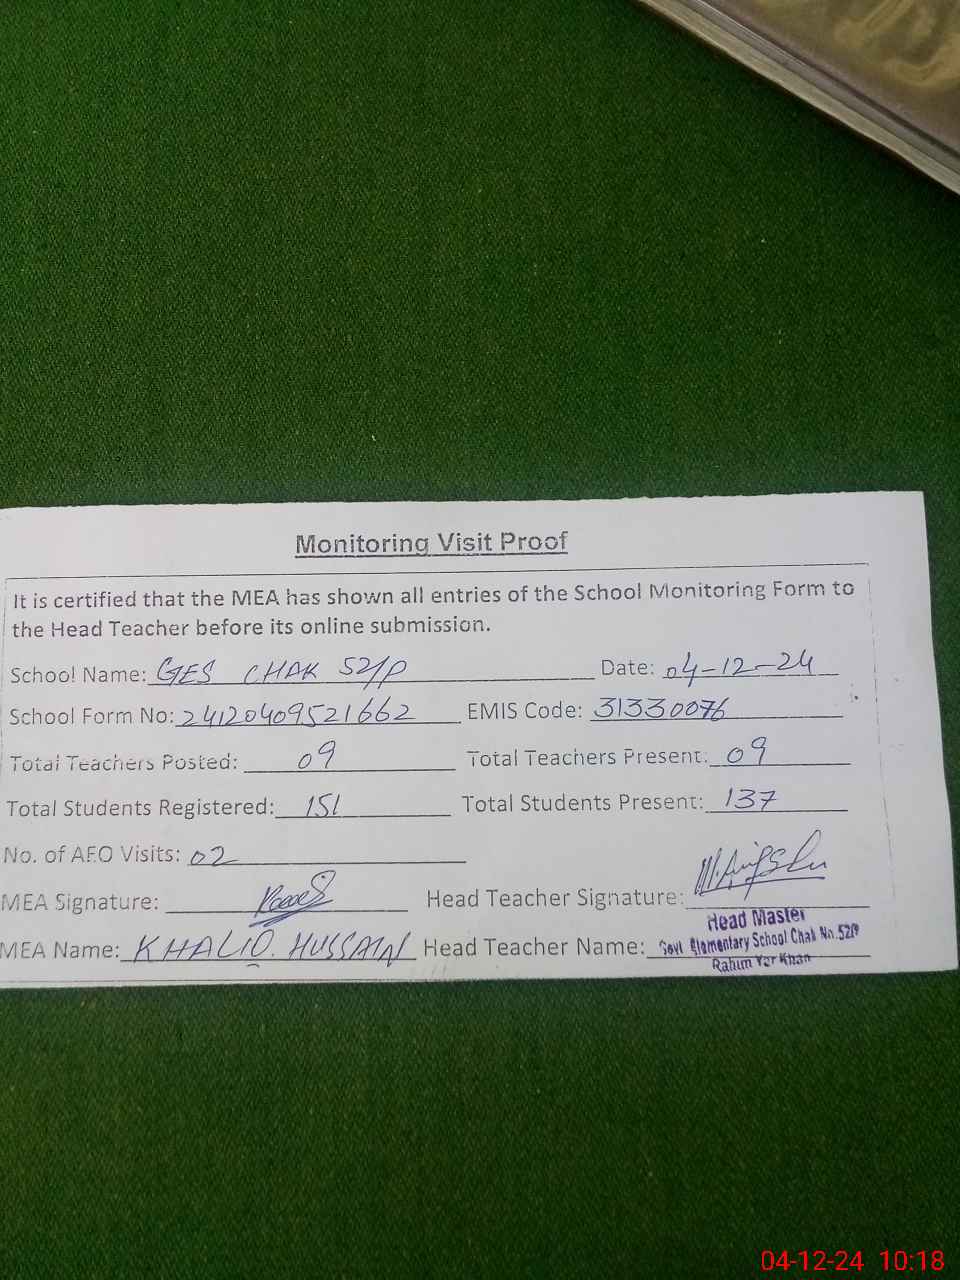 Monitoring Visit Proof
It is certified that the MEA has shown all entries of the School Monitoring Form to
the Head Teacher before its online submission.
School Name: GES CHAK 52/P Date: 04-12-24
School Form No: 24120409521662 EMIS Code: 31330076
Total Teachers Posted: 09 Total Teachers Present: 09
Total Students Registered: 151 Total Students Present: 137
No. of AEO Visits: 02
MEA Signature: Head Teacher Signature:
MEA Name: KHALID. HUSSAIN Head Teacher Name:
Head Master
Govt. Elementary School Chak No.52/P
Rahim Yar Khan
04-12-24 10:18